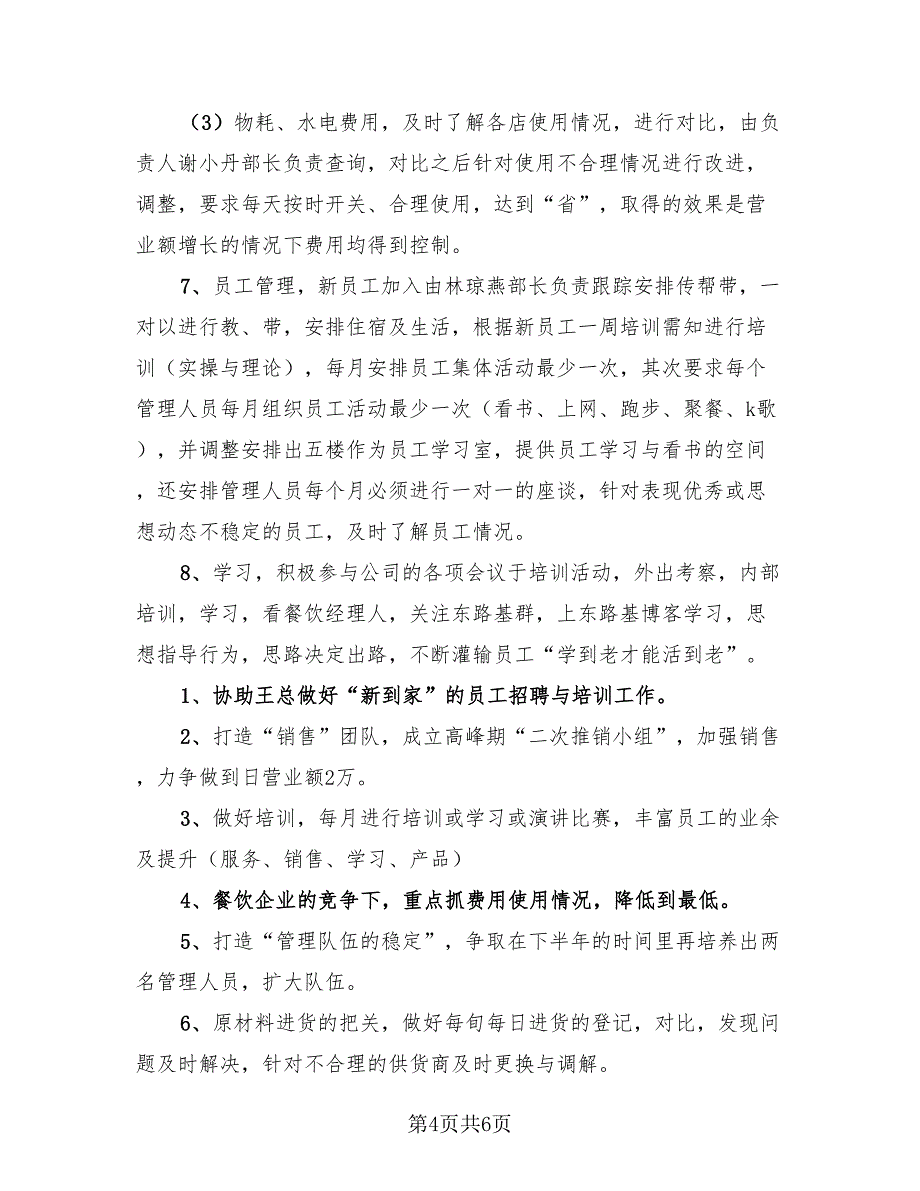 （3）物耗、水电费用，及时了解各店使用情况，进行对比，由负
责人谢小丹部长负责查询，对比之后针对使用不合理情况进行改进，
调整，要求每天按时开关、合理使用，达到“省”，取得的效果是营
业额增长的情况下费用均得到控制。
7、员工管理，新员工加入由林琼燕部长负责跟踪安排传帮带，一
对以进行教、带，安排住宿及生活，根据新员工一周培训需知进行培
训（实操与理论），每月安排员工集体活动最少一次，其次要求每个
管理人员每月组织员工活动最少一次（看书、上网、跑步、聚餐、k歌
），并调整安排出五楼作为员工学习室，提供员工学习与看书的空间
，还安排管理人员每个月必须进行一对一的座谈，针对表现优秀或思
想动态不稳定的员工，及时了解员工情况。
8、学习，积极参与公司的各项会议于培训活动，外出考察，内部
培训，学习，看餐饮经理人，关注东路基群，上东路基博客学习，思
想指导行为，思路决定出路，不断灌输员工“学到老才能活到老”。
1、协助王总做好“新到家”的员工招聘与培训工作。
2、打造“销售”团队，成立高峰期“二次推销小组”，加强销售
，力争做到日营业额2万。
3、做好培训，每月进行培训或学习或演讲比赛，丰富员工的业余
及提升（服务、销售、学习、产品）
4、餐饮企业的竞争下，重点抓费用使用情况，降低到最低。
5、打造“管理队伍的稳定”，争取在下半年的时间里再培养出两
名管理人员，扩大队伍。
6、原材料进货的把关，做好每旬每日进货的登记，对比，发现问
题及时解决，针对不合理的供货商及时更换与调解。
第4页共6页